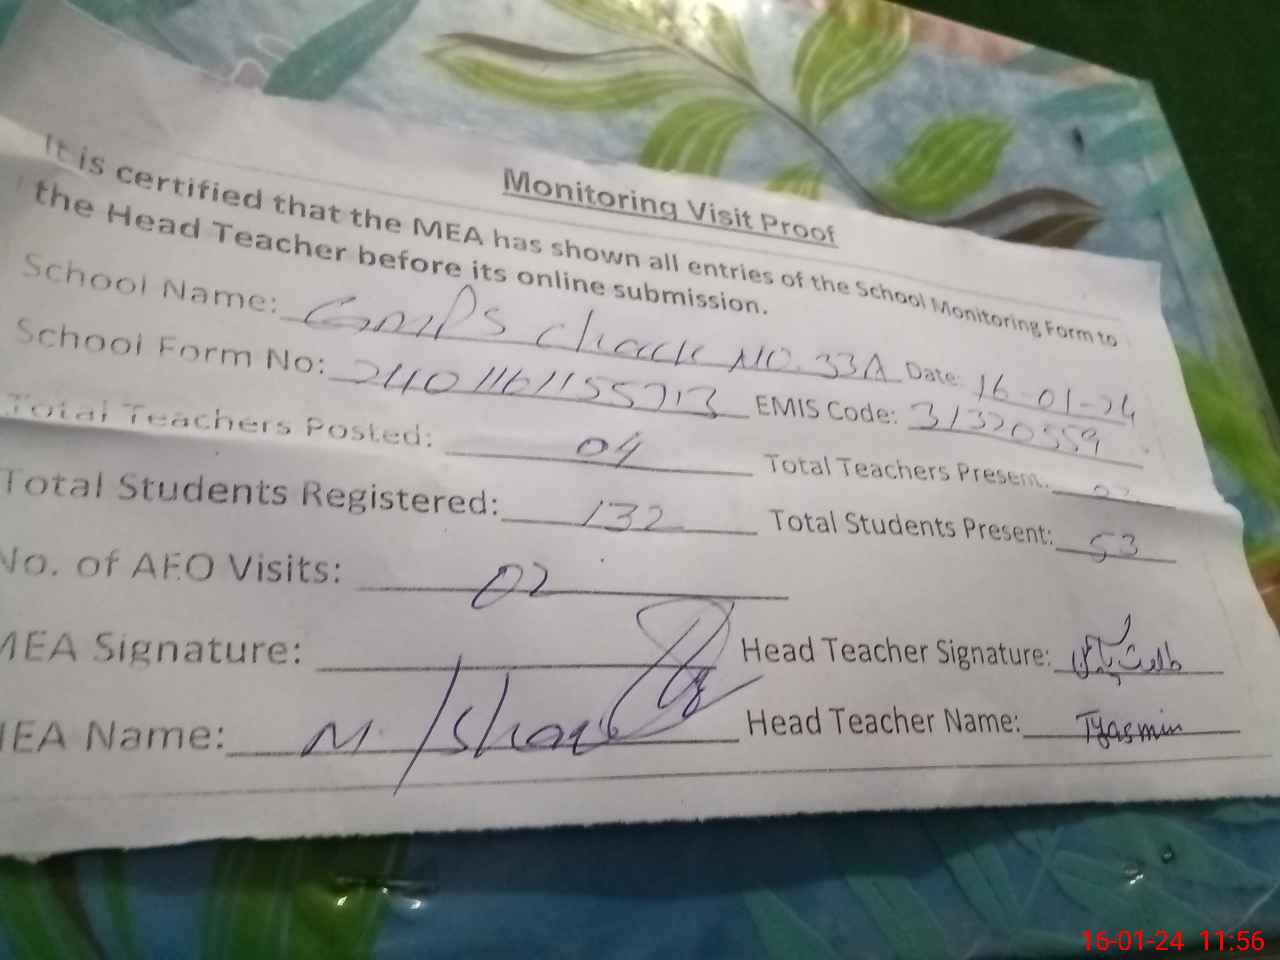 Monitoring Visit Proof
It is certified that the MEA has shown all entries of the School Monitoring Form to
the Head Teacher before its online submission.
School Name: GMPS chack NO. 33A Date: 16-01-24
School Form No: 2401161155713 EMIS Code: 31320559
Total Teachers Posted: 04 Total Teachers Present:
Total Students Registered: 132 Total Students Present: 53
No. of AEO Visits: 02
MEA Signature: Head Teacher Signature:
MEA Name: M. Head Teacher Name: TYasmin
16-01-24 11:56